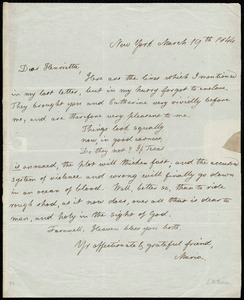 New York March 19th 1844
Dear Henrietta,
Here are the lines which I mentioned
in my last letter, but in my hurry forgot to enclose.
They brought you and Catharine very vividly before
me, and are therefore very pleasant to me.
Things look squally
now, in good earnest,
Do they not? If Texas
is annexed, the plot will thicken fast, and the accursed
system of violence and wrong will finally go down
in an ocean of blood. Well, better so, than to ride
rough shod, as it now does, over all that is dear to
man, and holy in the sight of God.
Farewell. Heaven bless you both.
Yr affectionate & grateful friend,
Maria.